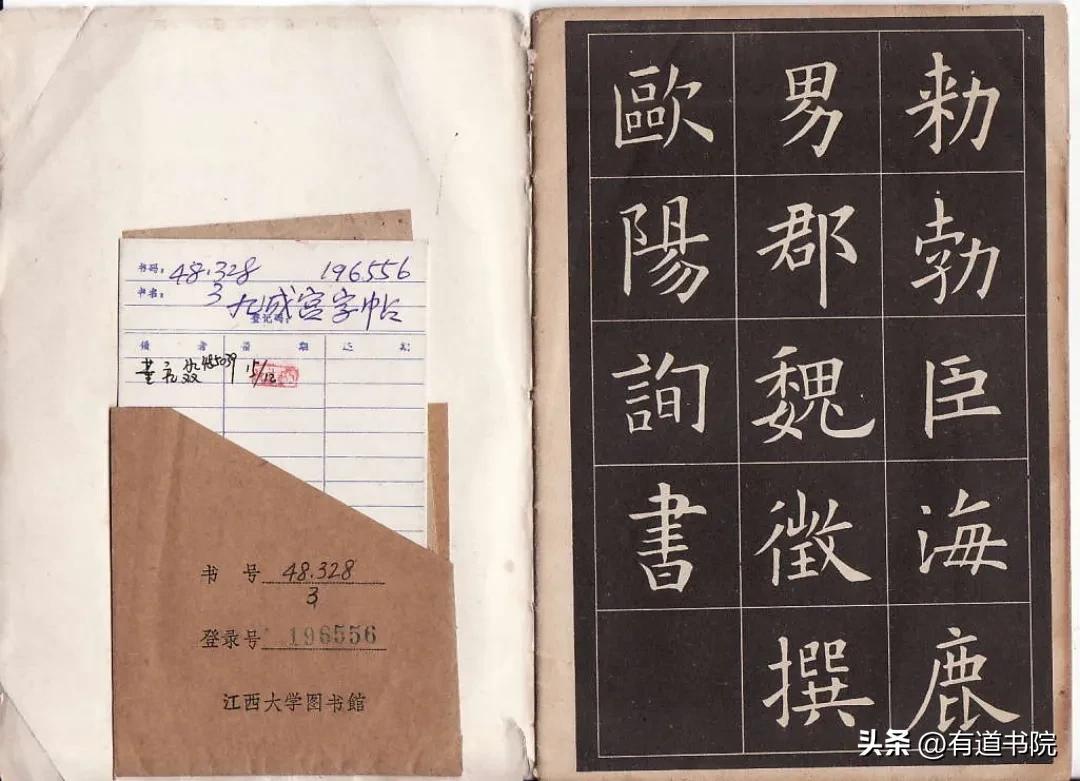 书码: 48.328 196556
3
书名: 九成宫字帖
登记码:
借 者 借 期 还 期
15/12
书 号 48.328
3
登录号 196556
江西大学图书館
勑勃臣海鹿
男郡魏徵撰
歐陽詢書
头条 @有道书院